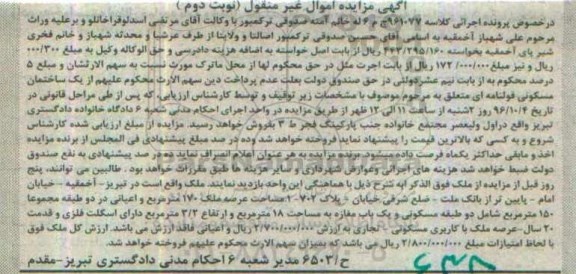 آگهی مزایده اموال غیر منقول (نوبت دوم)
درخصوص پرونده اجرائی کلاسه ۹۶۱۰۷۷ ج م ۶ له خانم آمنه صدوقی ترکمبور با وکالت آقای مرتضی اسدلوقراخانلو و برعلیه وراث
مرحوم علی شهباز آخمقیه به اسامی آقای حسین صدوقی ترکمبور اصالتا و ولایتا از طرف عرشیا و محدثه شهباز و خانم فخری
شیر پای آخمقیه بخواسته ۴۴۳/۲۹۵/۱۶۰ ریال از بابت اصل خواسته به اضافه هزینه دادرسی و حق الوکاله وکیل به مبلغ ۳۰۰/۰۰۰
ریال و نیز مبلغ ۱۷۲/۰۰۰/۰۰۰ ریال از بابت اجرت مثل در حق محکوم لها از محل ماترک مورث نسبت به سهم الارثشان و مبلغ ۵
درصد محکوم به از بابت نیم عشردولتی در حق صندوق دولت بعلت عدم پرداخت دین سهم الارث محکوم علیهم از یک ساختمان
مسکونی قولنامه ای متعلق به مرحوم موصوف با مشخصات زیر توقیف و توسط کارشناس ارزیابی، که پس از طی مراحل قانونی در
تاریخ ۹۶/۱۰/۴ روز ۲شنبه از ساعت ۱۱ الی ۱۲ ظهر از طریق مزایده در واحد اجرای احکام مدنی شعبه ۶ دادگاه خانواده دادگستری
تبریز واقع دراول ولیعصر مجتمع خانواده جنب پارکینگ فجر ط ۳ بفروش خواهد رسید. مزایده از مبلغ ارزیابی شده کارشناس
شروع و به کسی که بالاترین قیمت را پیشنهاد نماید فروخته خواهد شد وده در صد مبلغ پیشنهادی فی المجلس از برنده مزایده
اخذ و مابقی حداکثر یکماه فرصت داده میشود برنده مزایده به هر عنوان اعلام انصراف نماید ده در صد پیشنهادی به نفع صندوق
دولت ضبط خواهد شد هزینه های اجرائی وعوارض شهرداری و سایر هزینه ها طبق مقررات خواهد بود. طالبین می توانند، پنج
روز قبل از مزایده از ملک فوق الذکر به شرح ذیل با هماهنگی این واحد بازدید نمایند. ملک واقع است در تبریز- آخمقیه - خیابان
امام - پایین تر از بانک ملت - ضلع شرقی خیابان - پلاک ۷۰۲-۱ مساحت عرصه ملک ۱۷۰ مترمربع و اعیانی در دو طبقه مجموعا
۱۵۰ مترمربع شامل دو طبقه مسکونی و یک باب مغازه به مساحت ۱۸ مترمربع و ارتفاع ۳/۲ مترمربع دارای اسکلت فلزی و قدمت
۲۰ سال-عرصه ملک با کاربری مسکونی - تجاری به ارزش ۲/۷۰۰/۰۰۰/۰۰۰ ریال و اعیانی فاقد ارزش می باشد. ارزش کل ملک فوق
با لحاظ امتیازات مبلغ ۲/۸۰۰/۰۰۰/۰۰۰ ریال می باشد که بمیزان سهم الارث محکوم علیهم فروخته خواهد شد.
ح/۶۵۰۳ مدیر شعبه ۶ احکام مدنی دادگستری تبریز-مقدم